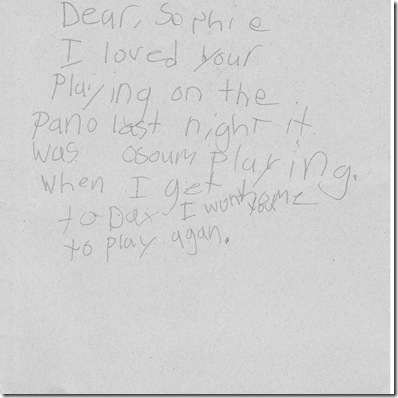 Dear, Sophie
I loved your
Playing on the
pano last night it
was osoum playing.
when I get home
to Day I wont you
to play agan.